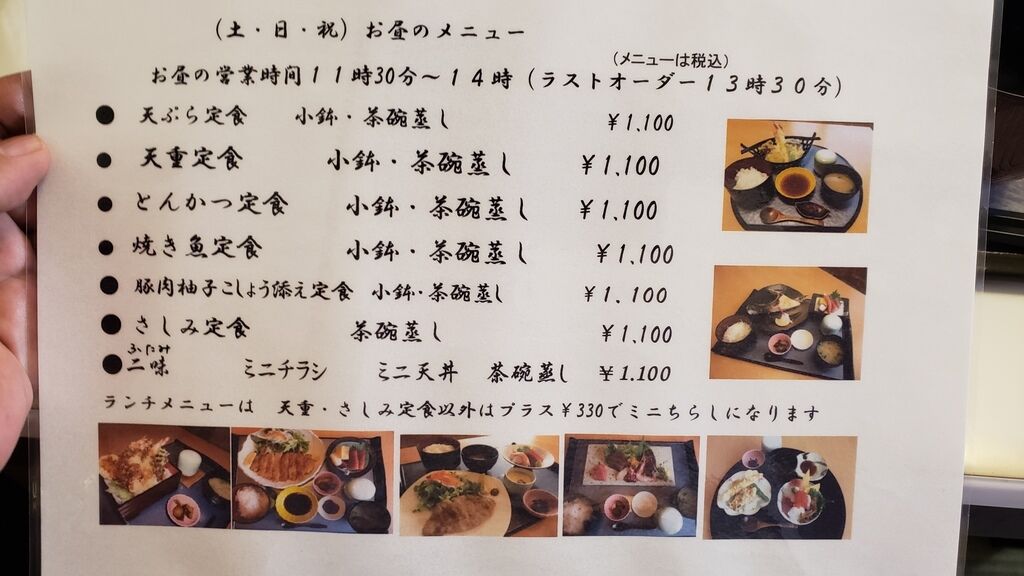 （土・日・祝）お昼のメニュー
（メニューは税込）
お昼の営業時間１１時30分～１４時（ラストオーダー１３時３０分）
● 天ぷら定食 小鉢・茶碗蒸し ￥1,100
● 天重定食 小鉢・茶碗蒸し ￥1,100
● とんかつ定食 小鉢・茶碗蒸し ￥1,100
● 焼き魚定食 小鉢・茶碗蒸し ￥1,100
● 豚肉柚子こしょう添え定食 小鉢・茶碗蒸し ￥1,100
● さしみ定食 茶碗蒸し ￥1,100
ふたみ
● 二味 ミニチラシ ミニ天丼 茶碗蒸し ￥1.100
ランチメニューは 天重・さしみ定食以外はプラス￥330でミニちらしになります